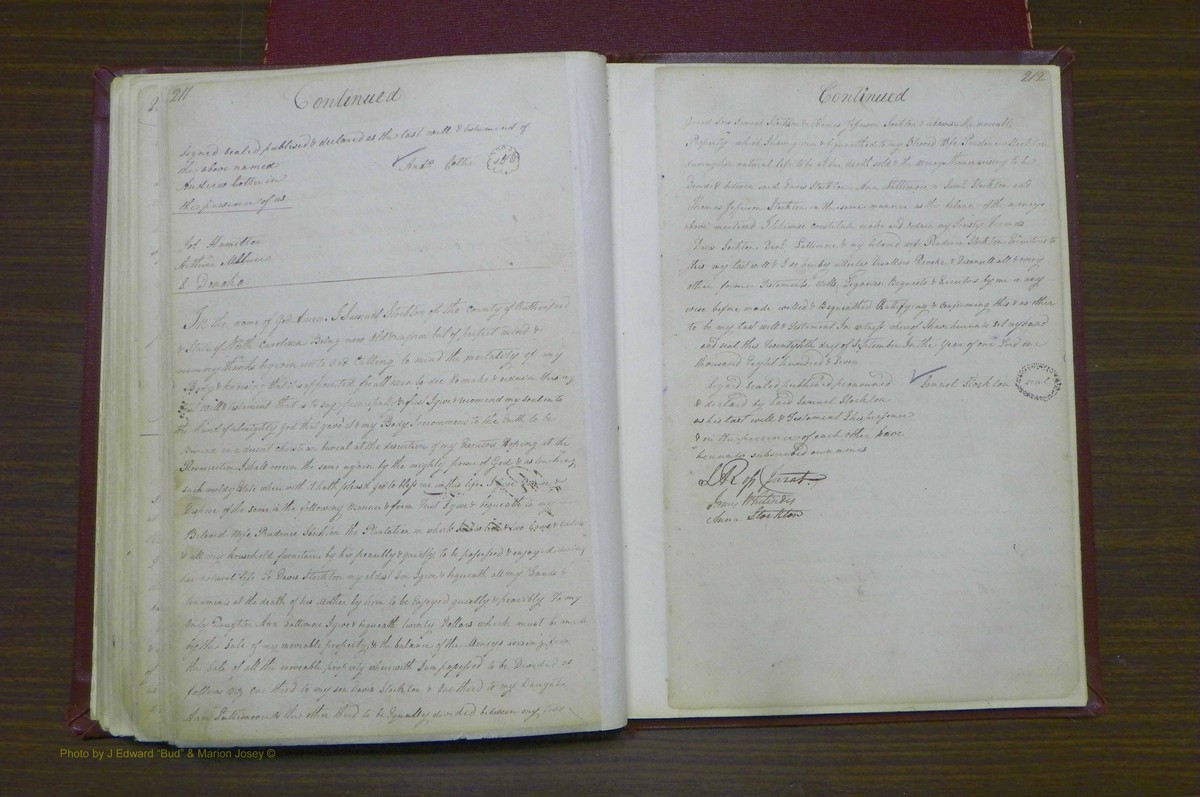 211
Continued
signed sealed publised & declared as the last will & testament of
the above named
Andrew Cotter in
the presence of us
Andw Cotter
seal
Jos. Hamilton
Arthur
J Donoho
In the name of God Amen I Samuel Stockton of the County of Rutherford
& State of North Carolina Being now old & infirm but of perfect mind &
memory thanks be given unto God Calling to mind the mortality of my
Body & knowing that it is appointed for all men to die do make & ordain this my
last will & testament that is to say principally & first I give & recomend my soul into
the hand of almighty god that gave it & my Body I recommend to the Earth to be
buried in a decent christian burial at the discretion of my Executors Hoping at the
Resurrection I shall receive the same again by the mighty power of God & as touching
such worldly Estate wherewith it hath pleased god to bless me in this life I give Devise &
Dispose of the same in the following manner & form First I give & bequeath to my
Beloved Wife Prudence Stockton the Plantation on which
& all my household furniture by her peacably & quietly to be possessed & enjoyed during
her natural life To Davis Stockton my eldest Son I give & bequeath all my Lands &
tenaments at the death of his Mother by him to be Enjoyed quietly & peacibly To my
only Daughter Ann Lattimore I give & bequeath twenty Dollars which must be made
by the Sale of my moveable property, & the balance of the Moneys arising from
the Sale of all the moveable property wherewith I am possessed to be Devided as
follows viz one third to my son Davis Stockton & one third to my Daughter
Ann Lattimore & the other third to be Equally devided between my two
212
Continued
Grand sons Samuel Stockton & Thomas Jefferson Stockton & whereas the moveable
Property which I have given & bequeathed to my Beloved Wife Prudence Stockton
during her natural life to be at her death sold & the moneys there arising to be
Devided between said Davis Stockton Ann Lattimore & Saml Stockton and
Thomas Jefferson Stockton in the same manner as the balance of the moneys
above mentioned I likewise constitute make and ordain my Trusty friends
Davis Stockton Danl Lattimore & my beloved wife Prudence Stockton Executors to
this my last will & I do hereby utterly disallow Revoke & Disannull all & every
other former Testaments, Wills, Legacies Bequests & Executors by me in any
wise before made willed & Bequeathed Ratifying & confirming this & no other
to be my last will & Testament In witness whereof I have hereunto set my hand
and seal this twentyfifth day of September In the year of our Lord one
thousand Eight hundred & Seven
Signed sealed published pronounced
& declared by said Samuel Stockton
as his last will & Testament In his presence
& in the presence of each other have
hereunto subscribed our names
Samuel Stockton
seal
Ross Jurat
James Whitesides
Anna Stockton
Photo by J Edward "Bud" & Marion Josey ©